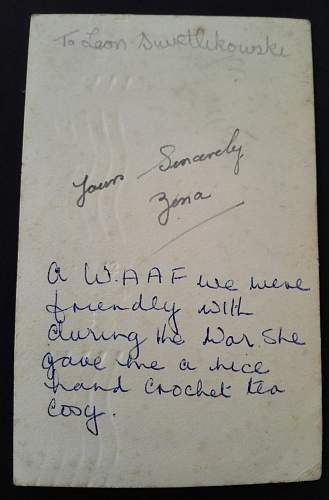 To Leon
Yours Sincerely
Zena
A W.A.A.F we were
friendly with
during the War. She
gave me a nice
hand crochet tea
cosy.